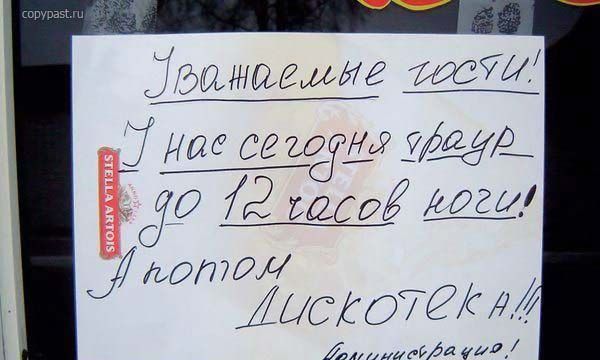 copypast.ru
Уважаемые гости!
У нас сегодня траур
до 12 часов ночи!
А потом
Дискотека!!!
Администрация!
STELLA ARTOIS